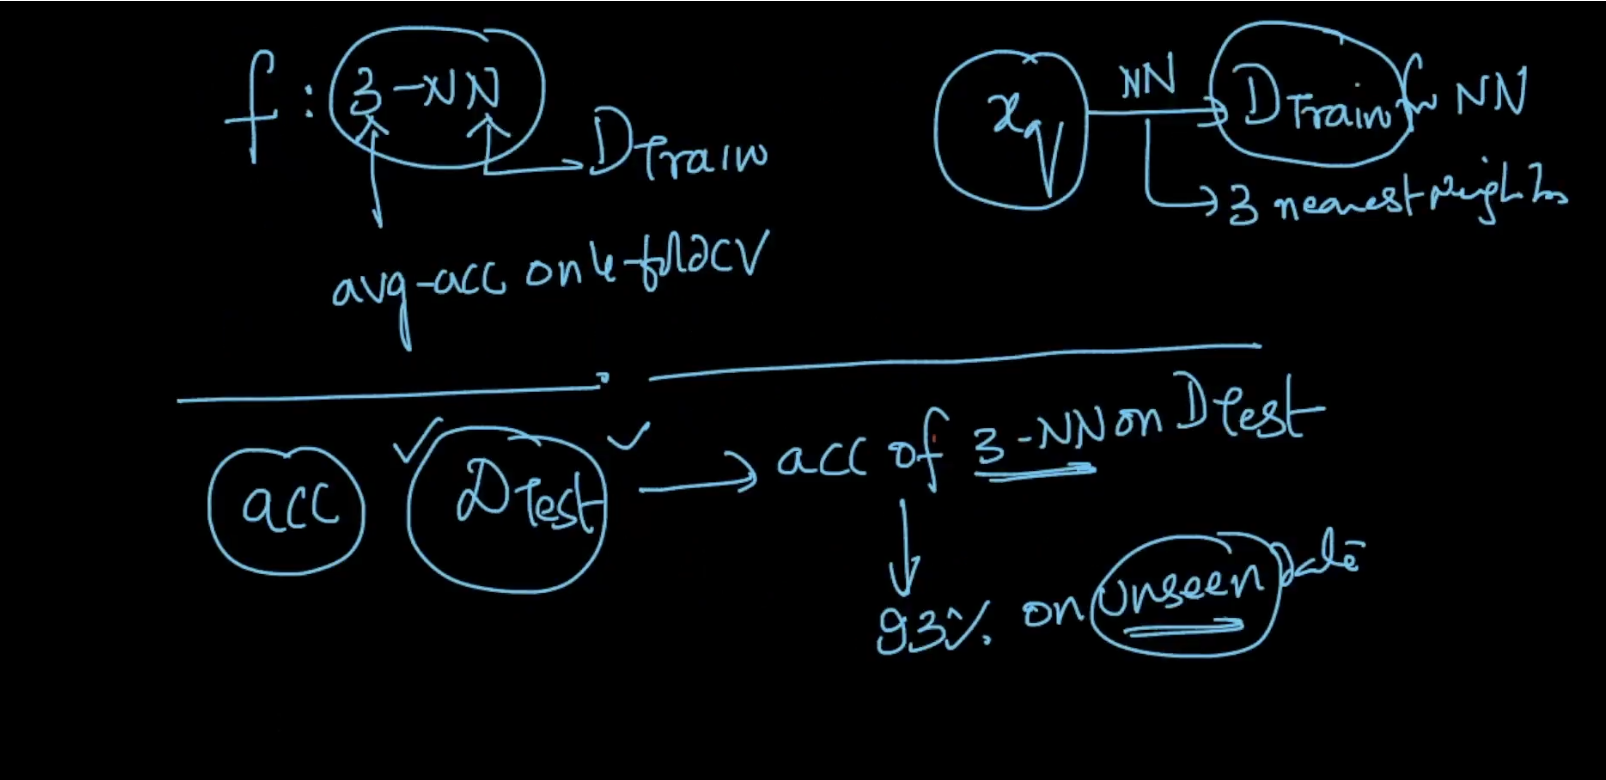 f : 3-NN
DTrain
avg-acc on k-fold CV
xq NN DTrain for NN
3 nearest neighbors
acc DTest → acc of 3-NN on DTest
93% on unseen data